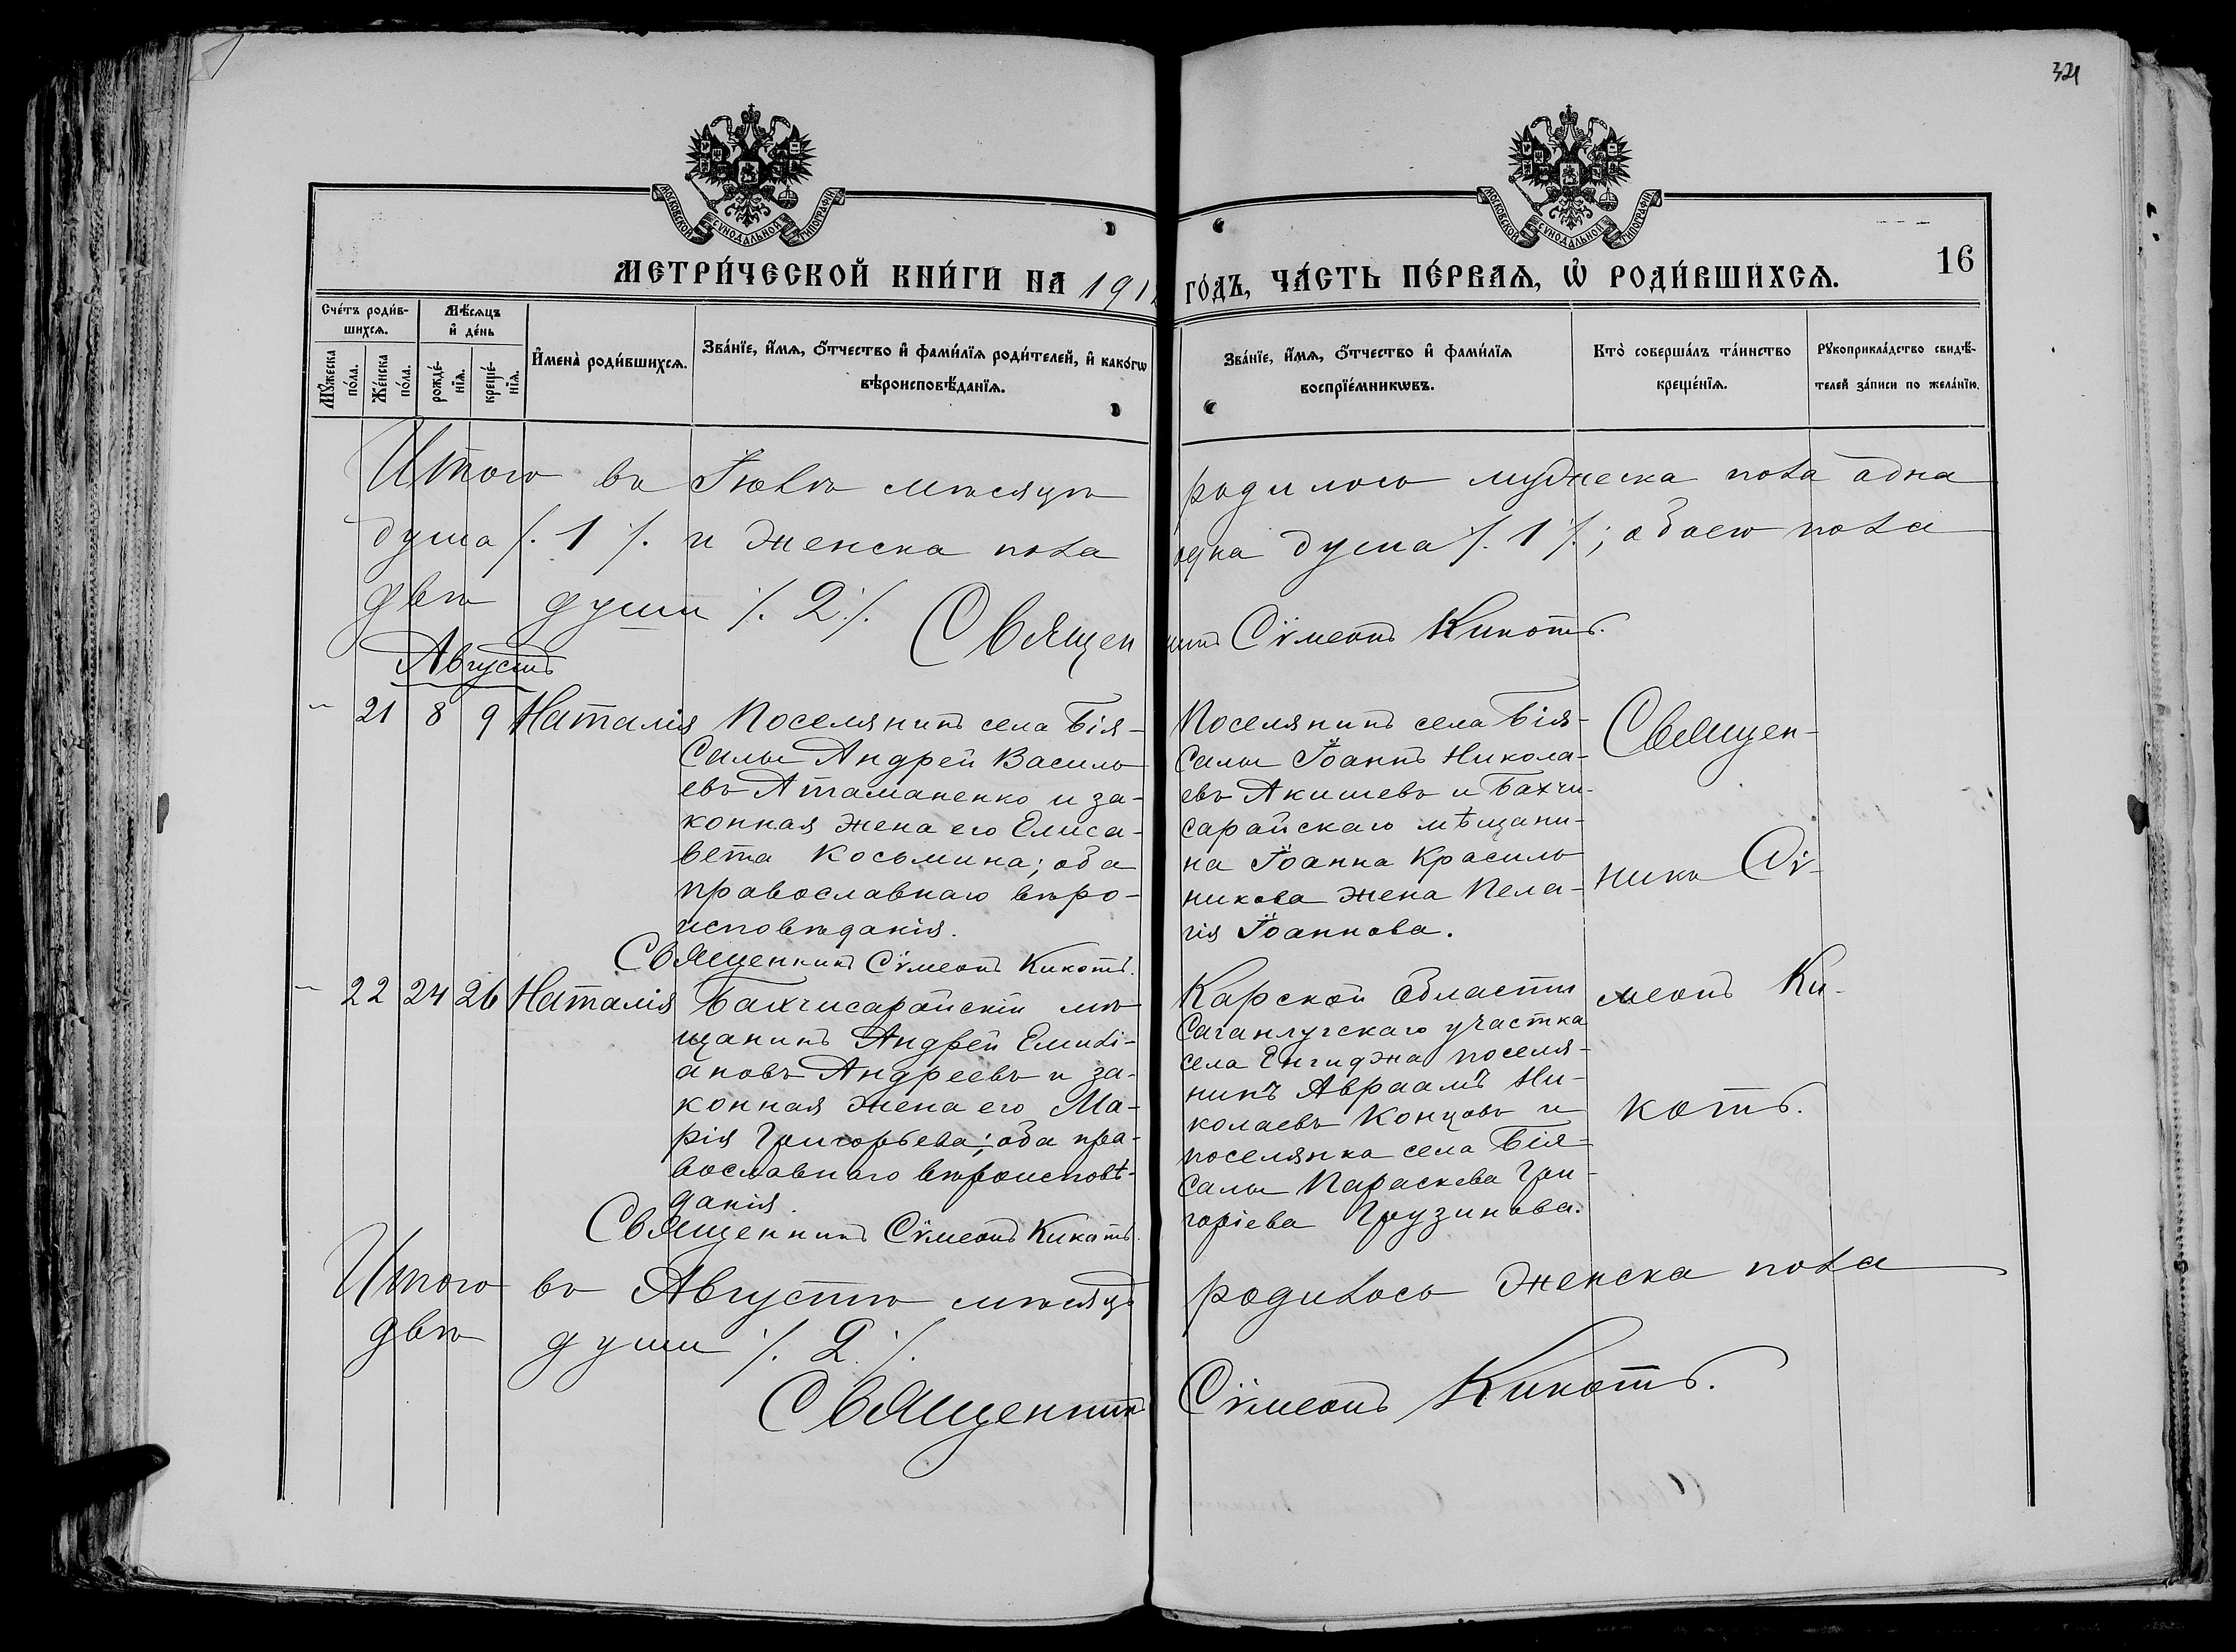 321
МОСКОВСКОЙ СѴНОДАЛЬНОЙ ТИПОГРАФІИ
МОСКОВСКОЙ СѴНОДАЛЬНОЙ ТИПОГРАФІИ
16
МЕТРИ́ЧЕСКОЙ КНИ́ГИ НА 191 ГО́ДЪ, ЧА́СТЬ ПЕ́РВАѦ, Ѡ РОДИ́ВШИХСѦ.
Сче́тъ роди́в-
шихсѧ.
Мꙋ́жеска
по́ла.
Же́нска
по́ла.
Мѣ́сѧцъ
и де́нь
рожде́-
нїѧ.
креще́-
нїѧ.
И҆мена̀ роди́вшихсѧ.
Зва́нїе, и҆́мѧ, ѻ҆́тчество и҆ фами́лїѧ роди́телей, и҆ како́гѡ
вѣроисповѣ́данїѧ.
Зва́нїе, и҆́мѧ, ѻ҆́тчество и҆ фами́лїѧ
воспрїе́мникѡвъ.
Кто̀ соверша́лъ та́инство
креще́нїѧ.
Рꙋкоприкла́дство свидѣ́-
телей за́писи по жела́нїю.
Итого въ Іюлѣ мѣсяцѣ родилось мужеска пола одна
душа /. 1 /. и женска пола одна душа /. 1 /.; обоего пола
двѣ души /. 2 /. Священникъ Сѵмеонъ Кикоть.
Августъ
– 21 8 9 Наталія
Поселянинъ села Бія-
Салы Андрей Василь-
евъ Атаманенко и за-
конная жена его Елиса-
вета Косьмина; оба
православнаго вѣро-
исповѣданія.
Священникъ Сѵмеонъ Кикоть.
Поселянинъ села Бія-
Салы Іоаннъ Никола-
евъ Акишевъ и Бахчи-
сарайскаго мѣщани-
на Іоанна Красиль-
никова жена Пела-
гія Іоаннова.
Священ-
никъ Сѵ-
меонъ Ки-
коть.
– 22 24 26 Наталія
Бахчисарайскій мѣ-
щанинъ Андрей Емилі-
ановъ Андреевъ и за-
конная жена его Ма-
рія Григорьева; оба пра-
вославнаго вѣроисповѣ-
данія.
Священникъ Сѵмеонъ Кикоть.
Карской Области
Саганлугскаго участка
села Енгиджа поселя-
нинъ Авраамъ Ни-
колаевъ Концовъ и
поселянка села Бія-
Салы Параскева Гри-
горіева Грузинова.
Итого въ Августѣ мѣсяцѣ родилось женска пола
двѣ души /. 2 /.
Священникъ Сѵмеонъ Кикоть.